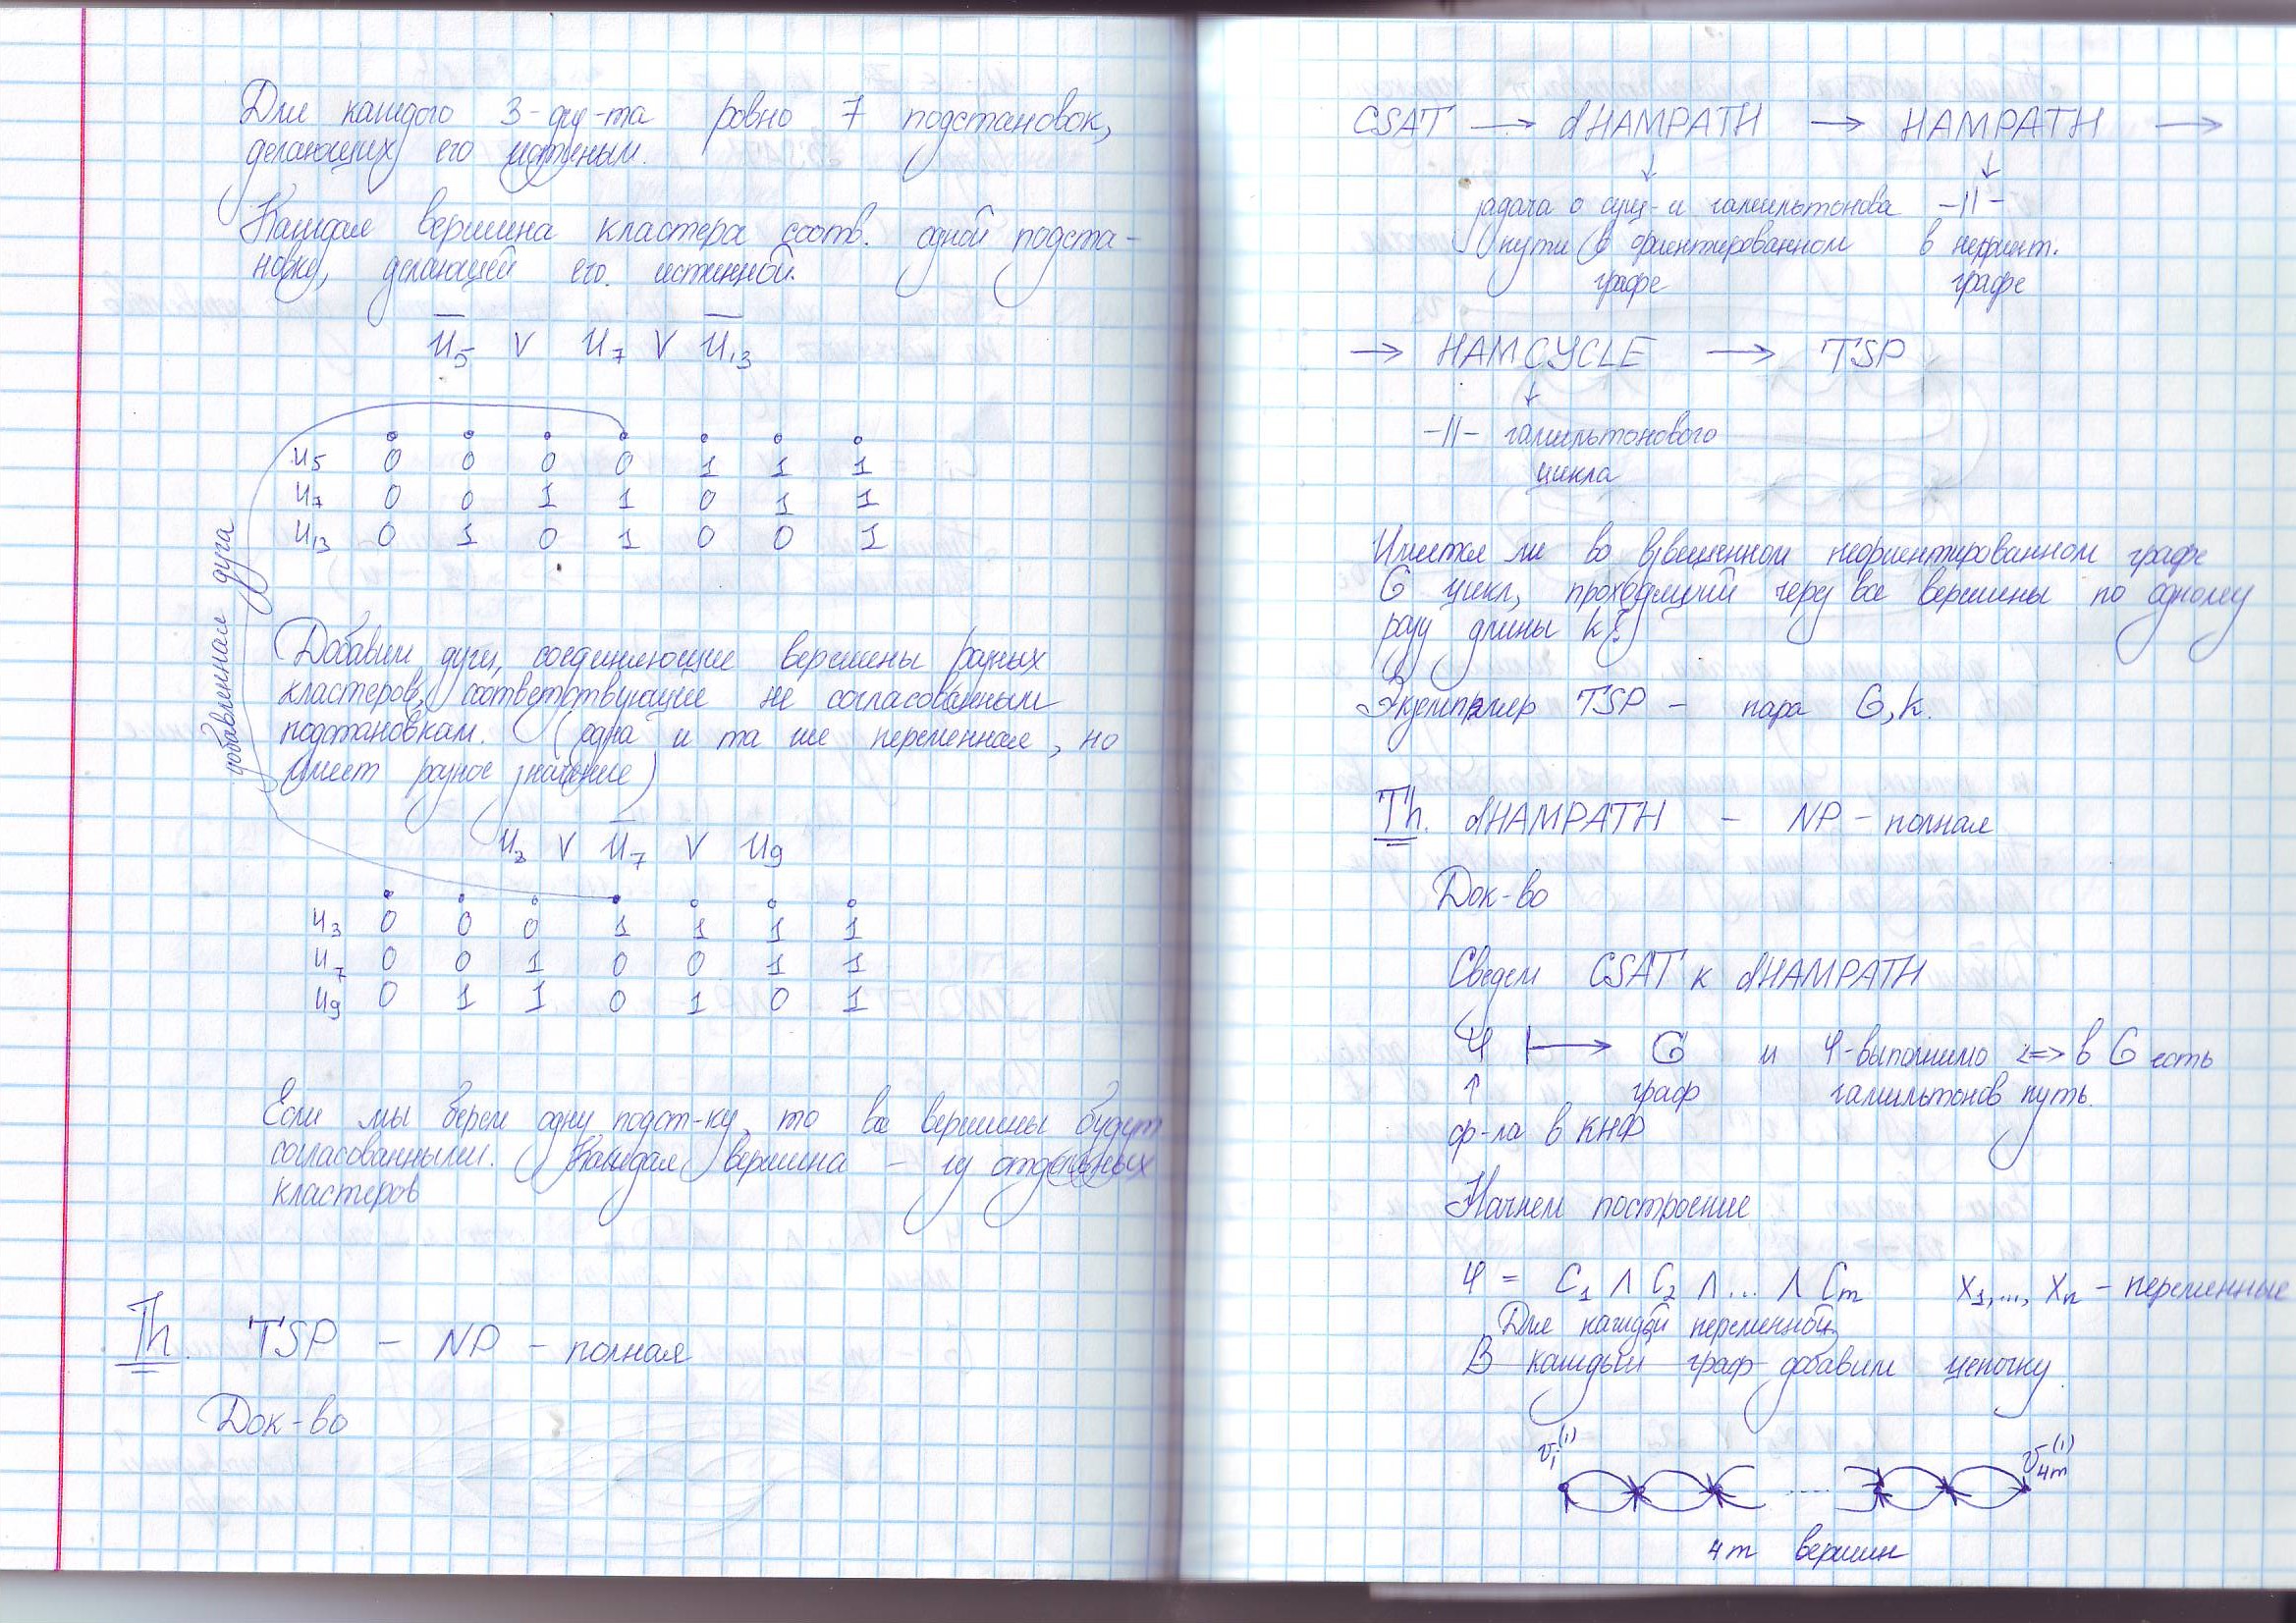 Для каждого 3-ду-та ровно 7 подстановок,
делающих его истиным.
Каждая вершина кластера соотв. одной подста-
новке, делающей его истинной.
u̅₅ ∨ u₇ ∨ u̅₁₃
u₅ 0 0 0 0 1 1 1
u₇ 0 0 1 1 0 1 1
u₁₃ 0 1 0 1 0 0 1
добавленная дуга
Добавим дуги, соединяющие вершины разных
кластеров, соответствующие не согласованным
подстановкам. (одна и та же переменная, но
имеет разное значение)
u₃ ∨ u̅₇ ∨ u₉
u₃ 0 0 0 1 1 1 1
u₇ 0 0 1 0 0 1 1
u₉ 0 1 1 0 1 0 1
Если мы берем одну подст-ку, то все вершины будут
согласованными. Каждая вершина – из отдельных
кластеров
Th. TSP – NP – полная
Док-во
CSAT → dHAMPATH → HAMPATH →
↓ ↓
задача о сущ-и гамильтонова –||–
пути в ориентированном в неориент.
графе графе
→ HAMCYCLE → TSP
↓
–||– гамильтонового
цикла
Имеется ли во взвешенном неориентированном графе
G цикл, проходящий через все вершины по одному
разу длины k?
Экземпляр TSP – пара G, k.
Th. dHAMPATH – NP – полная
Док-во
Сведем CSAT к dHAMPATH
φ ↦ G и φ-выполнимо <=> в G есть
↑ граф гамильтонов путь.
ф-ла в КНФ
Начнем построение
φ = C₁ ∧ C₂ ∧ ... ∧ Cm x₁, ..., xn – переменные
Для каждой переменной
В каждый граф добавим цепочку.
v₁⁽¹⁾ v₄m⁽¹⁾
4m вершин